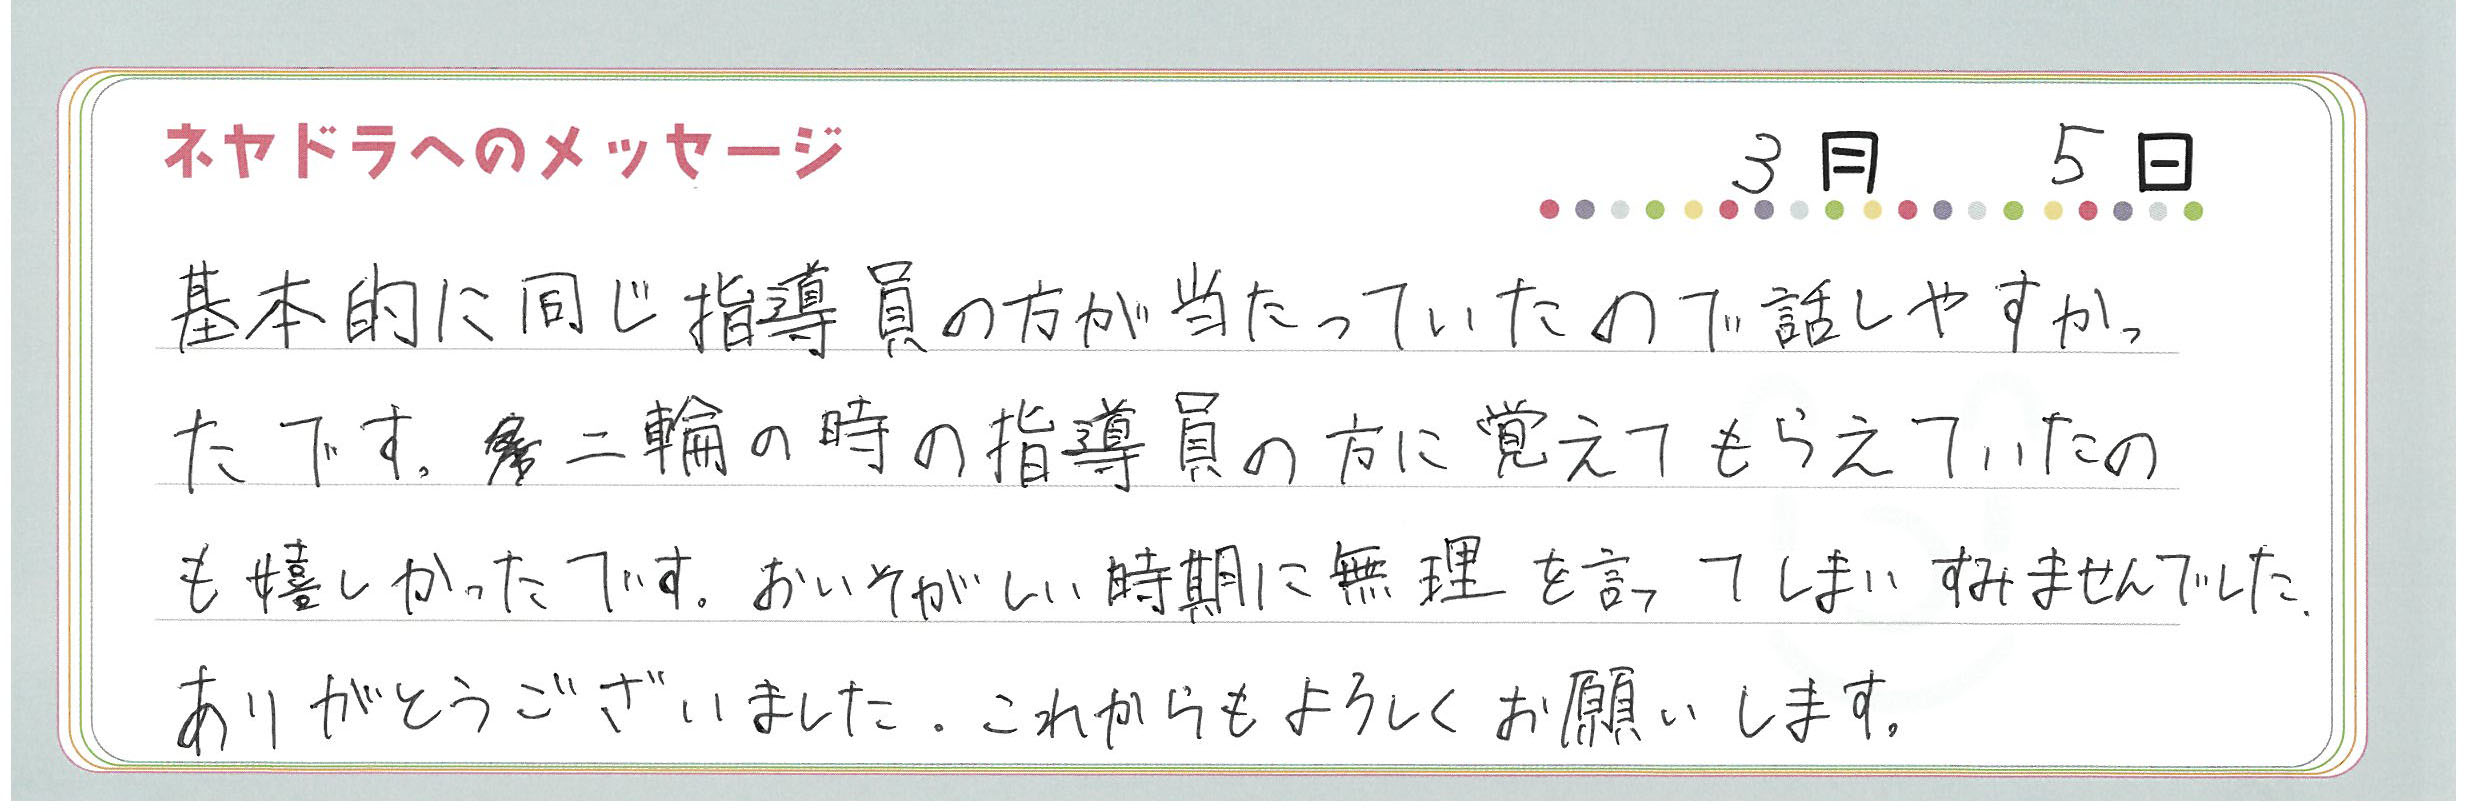 ネヤドラへのメッセージ
3月 5日
基本的に同じ指導員の方が当たっていたので話しやすかっ
たです。二輪の時の指導員の方に覚えてもらえていたの
も嬉しかったです。おいそがしい時期に無理を言ってしまいすみませんでした。
ありがとうございました。これからもよろしくお願いします。